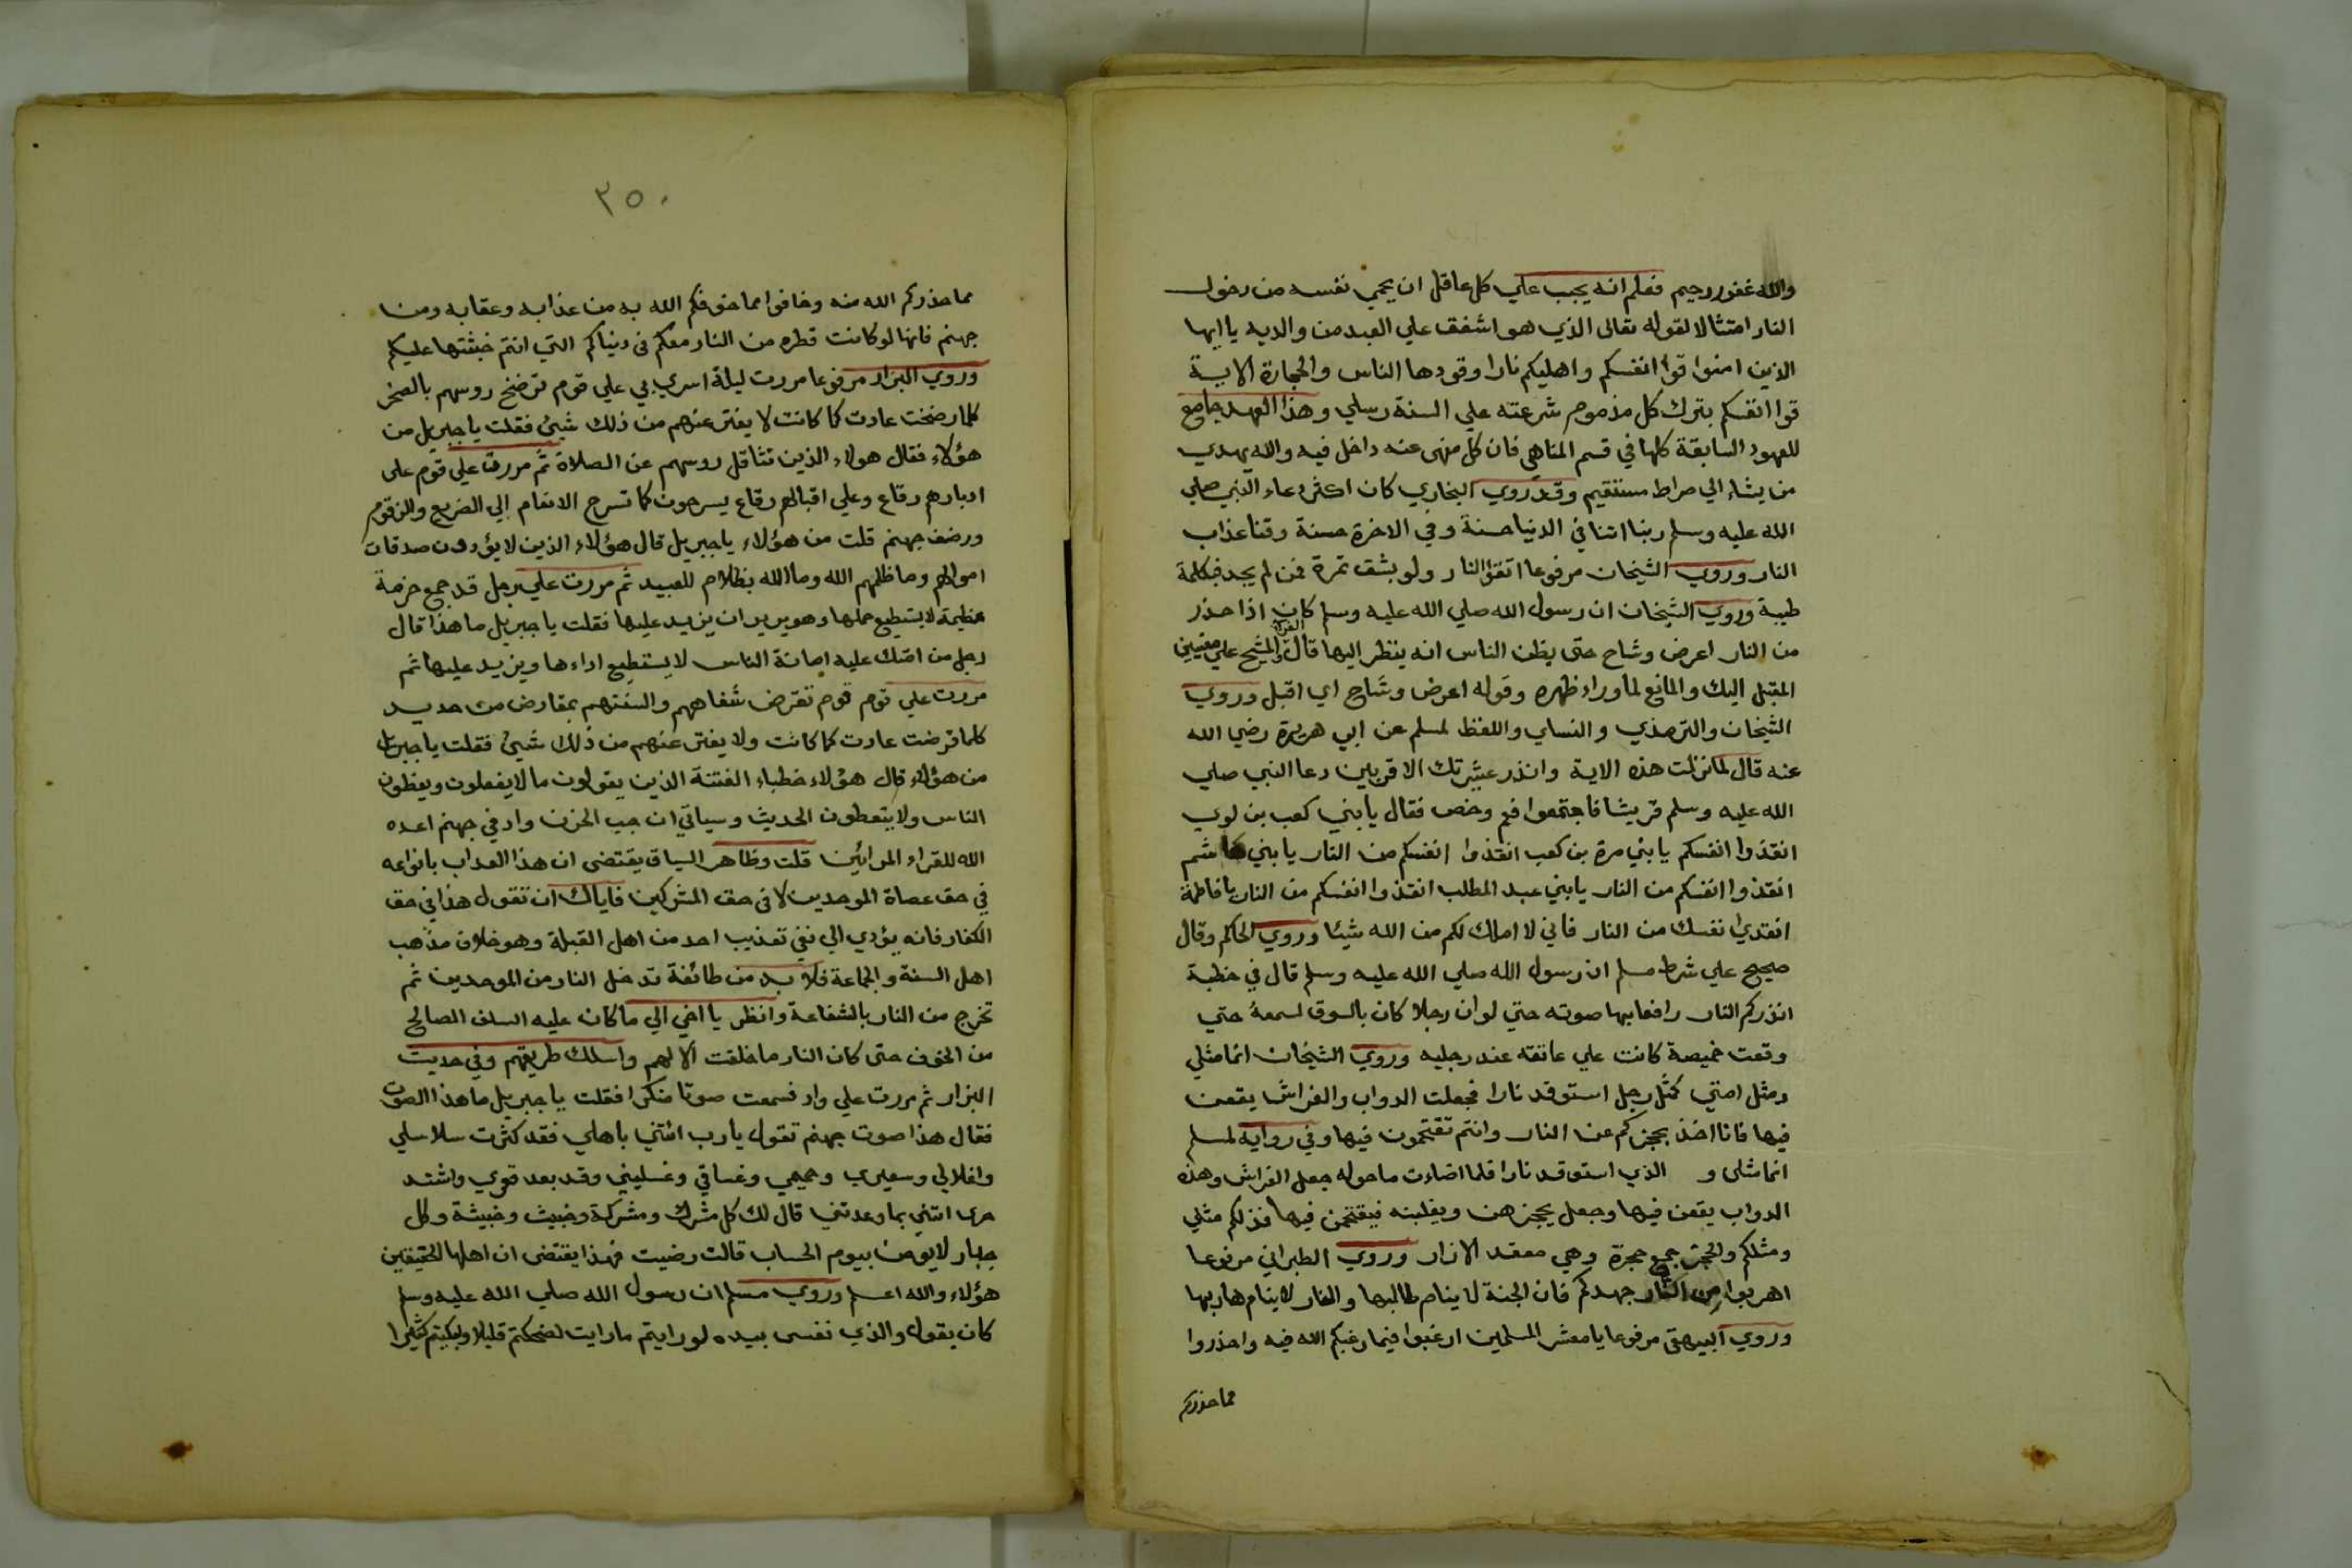 والله غفور رحيم فعلم انه يجب علي كل عاقل ان يحمي نفسه من دخول
النار امتثالا لقوله تعالى الذي هو اشفق علي العبد من والديه يا ايها
الذين امنوا قوا انفسكم واهليكم نارا وقودها الناس والحجارة الاية
قوا انفسكم بترك كل مذموم شرعته علي السنة رسلي وهذا العهد جامع
للعهود السابقة كلها في قسم المناهي فان كل منهى عنه داخل فيه والله يهدي
من يشاء الي صراط مستقيم وقد روي البخاري كان اكثر دعاء النبي صلي
الله عليه وسلم ربنا اتنا في الدنيا حسنة وفي الاخرة حسنة وقنا عذاب
النار وروي الشيخان مرفوعا اتقوا النار ولو بشق تمرة فمن لم يجد فبكلمة
طيبة وروي الشيخان ان رسول الله صلي الله عليه وسلم كان اذا حذر
من النار اعرض وشاح حتى يظن الناس انه ينظر اليها قال الفرا والمشيح علي معنيين
المقبل اليك والمانع لما وراء ظهره وقوله اعرض وشاح اي اقبل وروي
الشيخان والترمذي والنساي واللفظ لمسلم عن ابي هريرة رضي الله
عنه قال لما نزلت هذه الاية وانذر عشيرتك الاقربين دعا النبي صلي
الله عليه وسلم قريشا فاجتمعوا فعم وخص فقال يا بني كعب بن لوي
انقذوا انفسكم يا بني مرة بن كعب انقذوا انفسكم من النار يا بني هاشم
انقذوا انفسكم من النار يا بني عبد المطلب انقذوا انفسكم من النار يا فاطمة
انقذي نفسك من النار فاني لا املك لكم من الله شيئا وروي الحاكم وقال
صحيح علي شرط مسلم ان رسول الله صلي الله عليه وسلم قال في خطبة
انذركم النار رافعا بها صوته حتي لو ان رجلا كان بالسوق لسمعه حتي
وقعت خميصة كانت علي عاتقه عند رجليه وروي الشيخان انما مثلي
ومثل امتي كمثل رجل استوقد نارا فجعلت الدواب والفراش يقعن
فيها فانا اخذ بحجزكم عن النار وانتم تقتحمون فيها وفي رواية لمسلم
انما مثلى و الذي استوقد نارا فلما اضاءت ما حوله جعل الفراش وهذه
الدواب يقعن فيها وجعل يحجزهن ويغلبنه فيقتحمن فيها فذلكم مثلي
ومثلكم والحجز جمع حجزة وهي معقد الازار وروي الطبراني مرفوعا
اهربوا من النار جهدكم فان الجنة لا ينام طالبها والنار لا ينام هاربها
وروي البيهقي مرفوعا يا معشر المسلمين ارغبوا فيما رغبكم الله فيه واحذروا
مما حذركم
٣٥٠
مما حذركم الله منه وخافوا مما خوفكم الله به من عذابه وعقابه ومن
جهنم فانها لو كانت قطره من النار معكم في دنياكم التي انتم خبثتها عليكم
وروي البزار مرفوعا مررت ليلة اسري بي علي قوم ترضخ روسهم بالصخر
كلما رضخت عادت كما كانت لا يفتر عنهم من ذلك شيئ فقلت يا جبريل من
هؤلاء فقال هولاء الذين تثاقل روسهم عن الصلاة ثم مررت علي قوم على
ادبارهم رقاع وعلي اقبالهم رقاع يسرحون كما تسرح الانعام الي الضريع والزقوم
ورضف جهنم قلت من هؤلاء يا جبريل قال هؤلاء الذين لا يؤدون صدقات
اموالهم وما ظلمهم الله وما الله بظلام للعبيد ثم مررت علي رجل قد جمع حزمة
عظيمة لا يستطيع حملها وهو يريد ان يزيد عليها فقلت يا جبريل ما هذا قال
رجل من امتك عليه امانة الناس لا يستطيع اداءها ويزيد عليها ثم
مررت علي قوم قوم تقرض شفاههم والسنتهم بمقارض من حديد
كلما قرضت عادت كما كانت ولا يفتر عنهم من ذلك شيئ فقلت يا جبريل
من هؤلاء قال هؤلاء خطباء الفتنة الذين يقولون ما لا يفعلون ويعظون
الناس ولا يتعظون الحديث وسياتي ان جب الحزن واد في جهنم اعده
الله للقراء المرائين قلت وظاهر السياق يقتضى ان هذا العداب بانواعه
في حق عصاة الموحدين لا في حق المشركين فاياك ان تقول هذا في حق
الكفار فانه يؤدي الي نفي تعذيب احد من اهل القبلة وهو خلاف مذهب
اهل السنة والجماعة فلا بد من طائفة تدخل النار من الموحدين ثم
تخرج من النار بالشفاعة وانظر يا اخي الي ما كان عليه السلف الصالح
من الخوف حتى كان النار ما خلقت الا لهم واسلك طريقهم وفي حديث
البزار ثم مررت علي واد فسمعت صوتا منكرا فقلت يا جبريل ما هذا الصوت
فقال هذا صوت جهنم تقول يا رب ائتني باهلي فقد كثرت سلاسلي
واغلالي وسعيري وحميمي وغساقي وغسليني وقد بعد قعري واشتد
حرى ائتني بما وعدتني قال لك كل مشرك ومشركة وخبيث وخبيثة وكل
جبار لا يؤمن بيوم الحساب قالت رضيت فهذا يقتضى ان اهلها الحقيقين
هؤلاء والله اعلم وروي مسلم ان رسول الله صلي الله عليه وسلم
كان يقول والذي نفسى بيده لو رايتم ما رايت لضحكتم قليلا ولبكيتم كثيرا